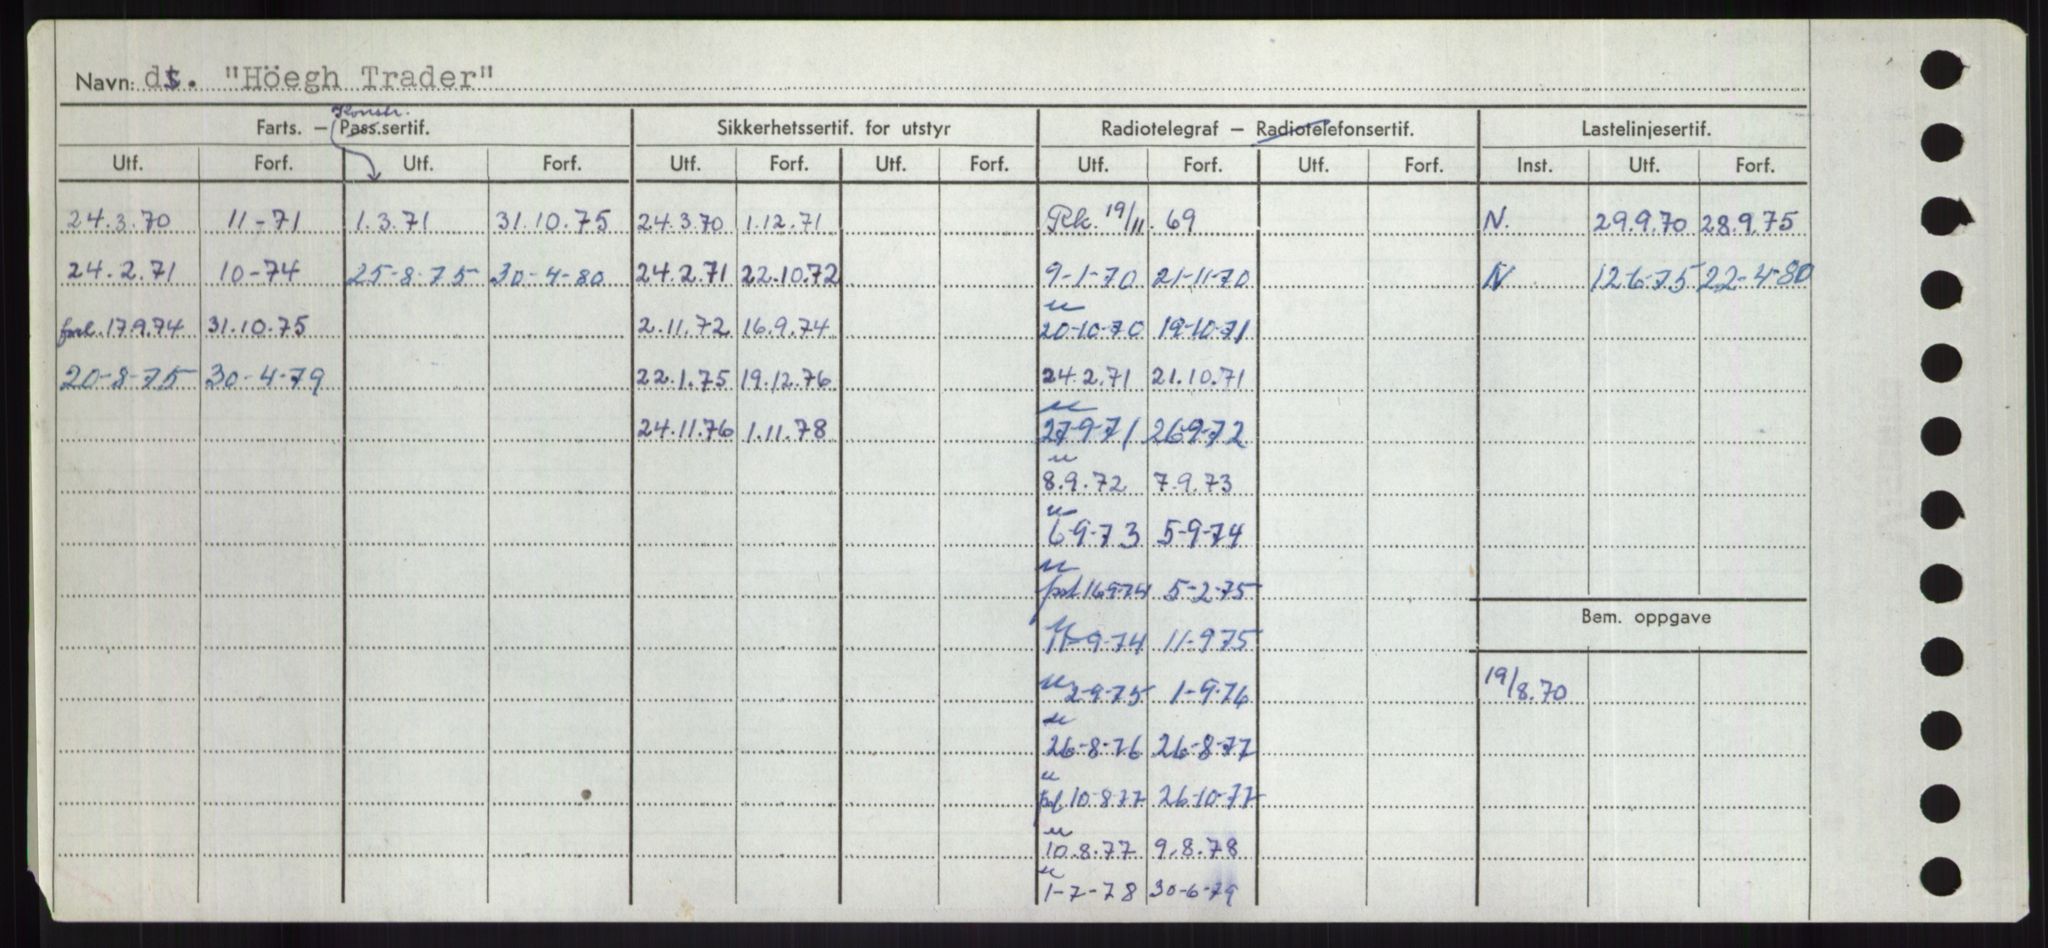 Navn: dt. "Höegh Trader"
Konstr.
Farts. — Pass.sertif. Sikkerhetssertif. for utstyr Radiotelegraf — Radiotelefonsertif. Lastelinjesertif.
Utf. Forf. Utf. Forf. Utf. Forf. Utf. Forf. Utf. Forf. Utf. Forf. Inst. Utf. Forf.
24.3.70 11-71 1.3.71 31.10.75 24.3.70 1.12.71 Rk. 19/11. 69 N. 29.9.70 28.9.75
24.2.71 10-74 25-8-75 30-4-80 24.2.71 22.10.72 9-1-70 21-11-70 N 12-6-75 22-4-80
forl. 17.9.74 31.10.75 2.11.72 16.9.74 " 20-10-70 19-10-71
20-8-75 30-4-79 22.1.75 19.12.76 24.2.71 21.10.71
24.11.76 1.11.78 " 27-9-71 26-9-72
" 8.9.72 7.9.73
" 6-9-73 5-9-74
" 16-9-74 5-2-75
Bem. oppgave
" 11-9-74 11-9-75
" 2-9-75 1-9-76 19/8.70
" 26-8-76 26-8-77
" 10-8-77 26-10-77
" 10.8.77 9.8.78
" 1-7-78 30-6-79